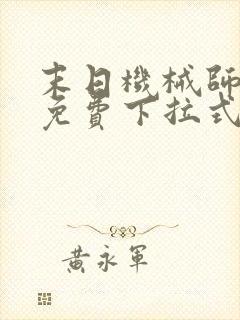 末日機械師
免費下拉式
黃永軍